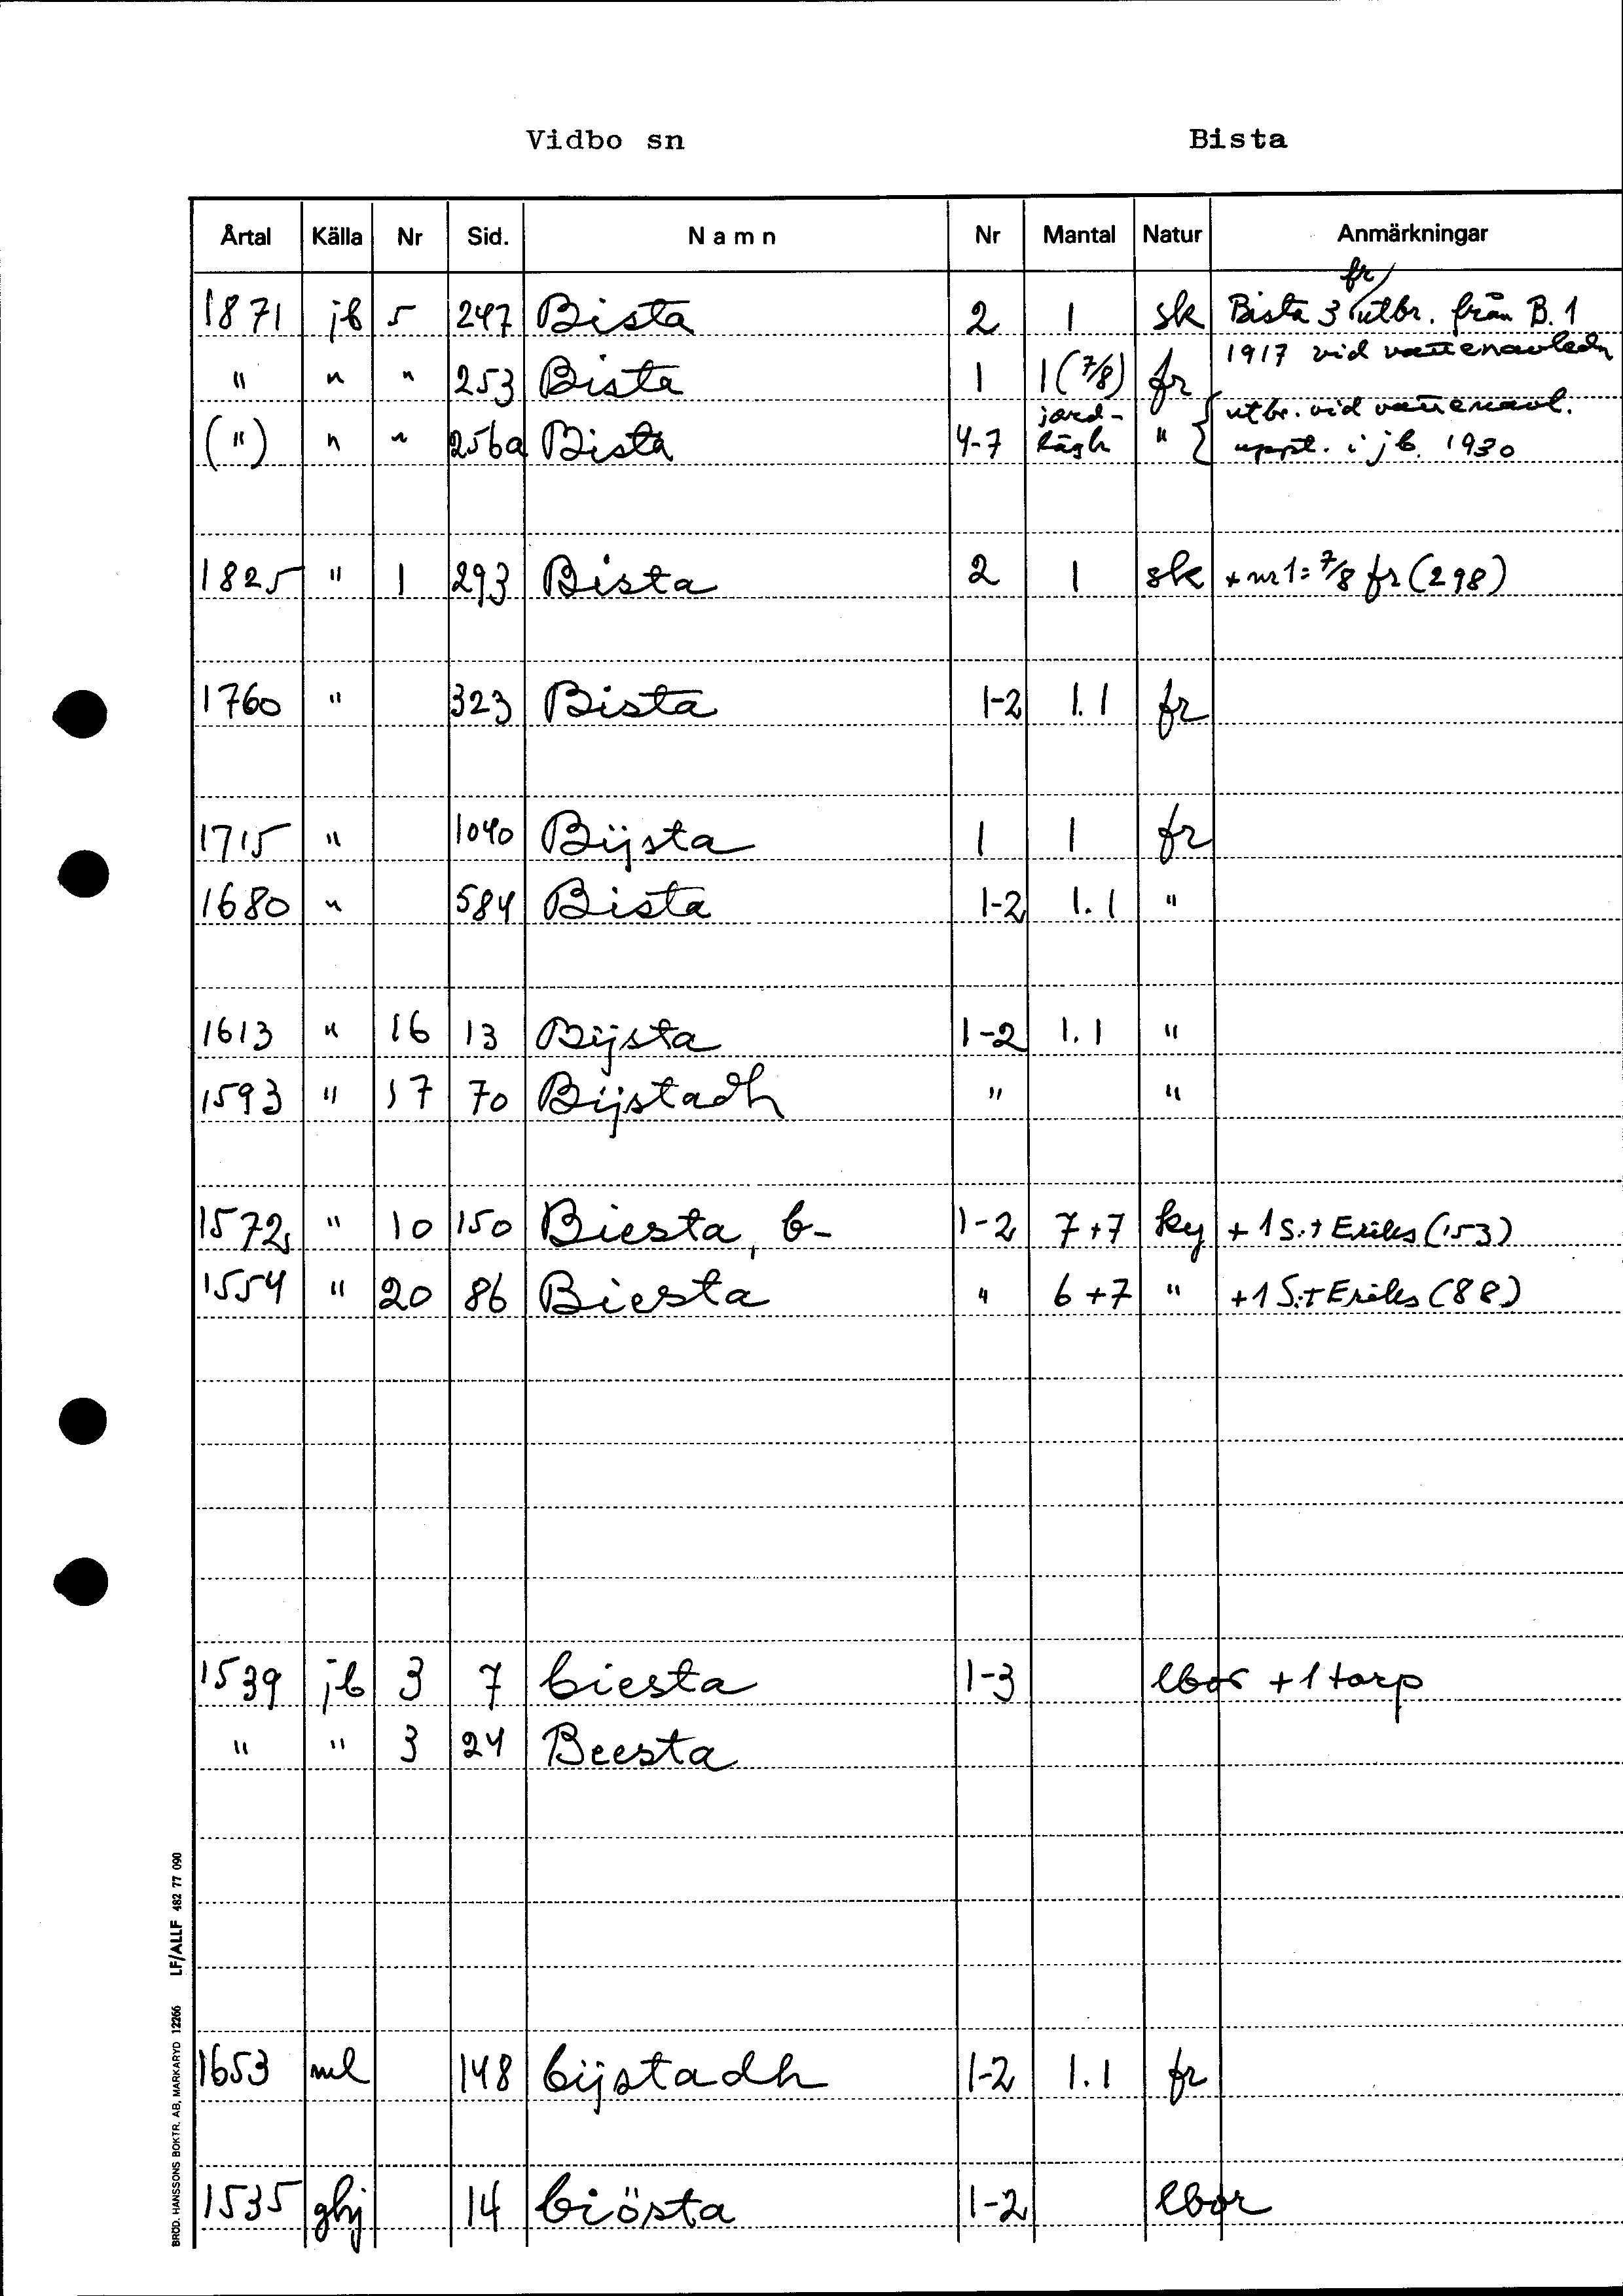 Vidbo sn Bista
Årtal Källa Nr Sid. Namn Nr Mantal Natur Anmärkningar
fr
1871 jb 5 247 Bista 2 1 sk Bista 3 utbr. från B. 1
1917 vid vattenavledn
" " " 253 Bista 1 1 (7/8) fr
jord- utbr. vid vattenavl.
(") " " 256a Bista 4-7 lägh " uppt. i jb. 1930
1825 " 1 293 Bista 2 1 sk + nr 1 = 7/8 fr (298)
1760 " 323 Bista 1-2 1.1 fr
1715 " 1040 Bijsta 1 1 fr
1680 " 584 Bista 1-2 1.1 "
1613 " 16 13 Bijsta 1-2 1.1 "
1593 " 17 70 Bijstadh " "
1572 " 10 150 Biesta, b- 1-2 7+7 ky + 1 S:t Eriks (153)
1554 " 20 86 Biesta " 6+7 " + 1 S:t Eriks (88)
1539 jb 3 7 biesta 1-3 lbor + 1 torp
" " 3 24 Beesta
1653 ml 148 bijstadh 1-2 1.1 fr
1535 ghj 14 biösta 1-2 lbor
BRÖD. HANSSONS BOKTR. AB, MARKARYD 12266 LF/ALLF 482 77 090